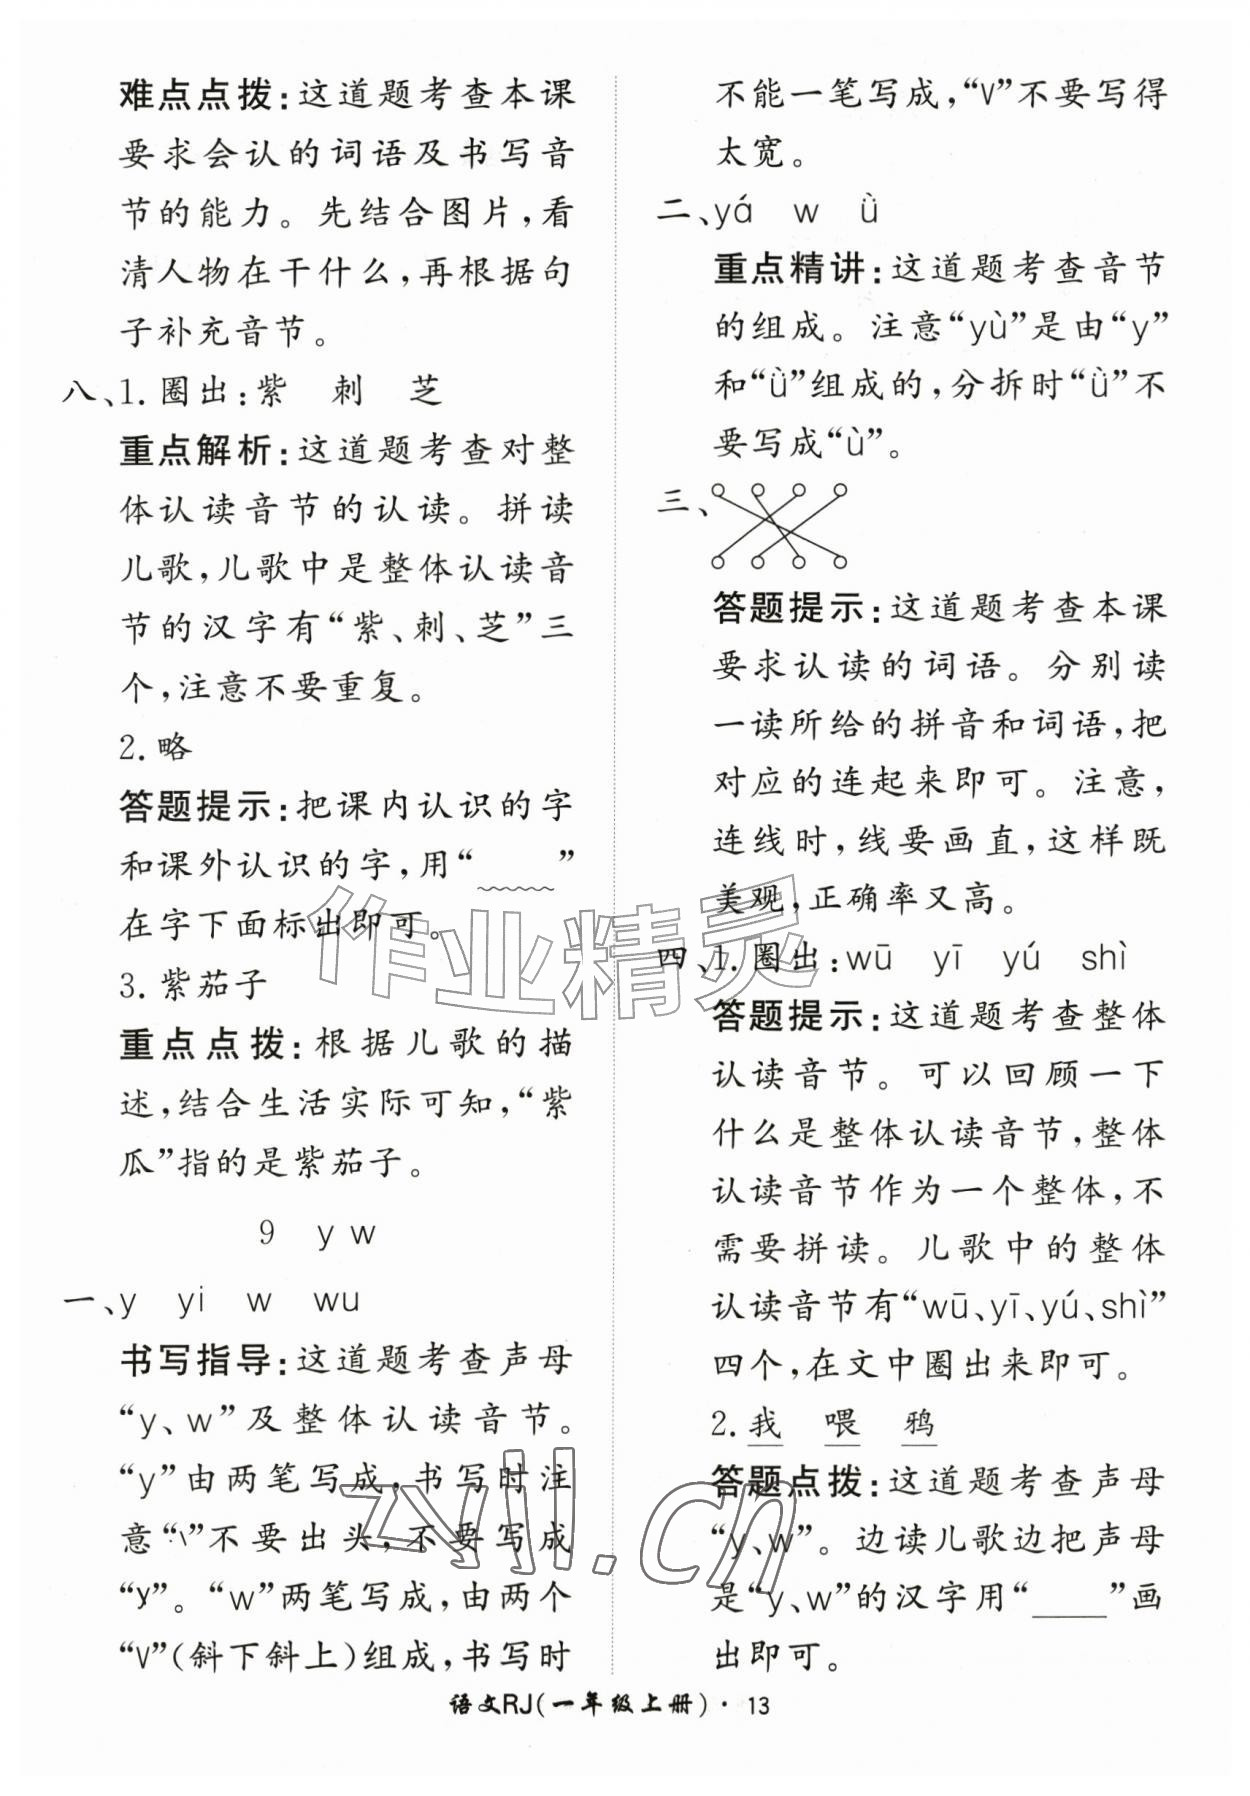 难点点拨：这道题考查本课
要求会认的词语及书写音
节的能力。先结合图片，看
清人物在干什么，再根据句
子补充音节。
八、1. 圈出：紫 刺 芝
重点解析：这道题考查对整
体认读音节的认读。拼读
儿歌，儿歌中是整体认读音
节的汉字有“紫、刺、芝”三
个，注意不要重复。
2. 略
答题提示：把课内认识的字
和课外认识的字，用“﹏﹏”
在字下面标出即可。
3. 紫茄子
重点点拨：根据儿歌的描
述，结合生活实际可知，“紫
瓜”指的是紫茄子。
9 y w
一、y yi w wu
书写指导：这道题考查声母
“y、w”及整体认读音节。
“y”由两笔写成，书写时注
意“\”不要出头，不要写成
“y”。“w”两笔写成，由两个
“V”（斜下斜上）组成，书写时
不能一笔写成，“V”不要写得
太宽。
二、yá w ǜ
重点精讲：这道题考查音节
的组成。注意“yù”是由“y”
和“ǜ”组成的，分拆时“ǜ”不
要写成“ù”。
三、
答题提示：这道题考查本课
要求认读的词语。分别读
一读所给的拼音和词语，把
对应的连起来即可。注意，
连线时，线要画直，这样既
美观，正确率又高。
四、1. 圈出：wū yī yú shì
答题提示：这道题考查整体
认读音节。可以回顾一下
什么是整体认读音节，整体
认读音节作为一个整体，不
需要拼读。儿歌中的整体
认读音节有“wū、yī、yú、shì”
四个，在文中圈出来即可。
2. 我 喂 鸦
答题点拨：这道题考查声母
“y、w”。边读儿歌边把声母
是“y、w”的汉字用“____”画
出即可。
语文RJ（一年级上册）· 13
作业精灵
zyjl.cn